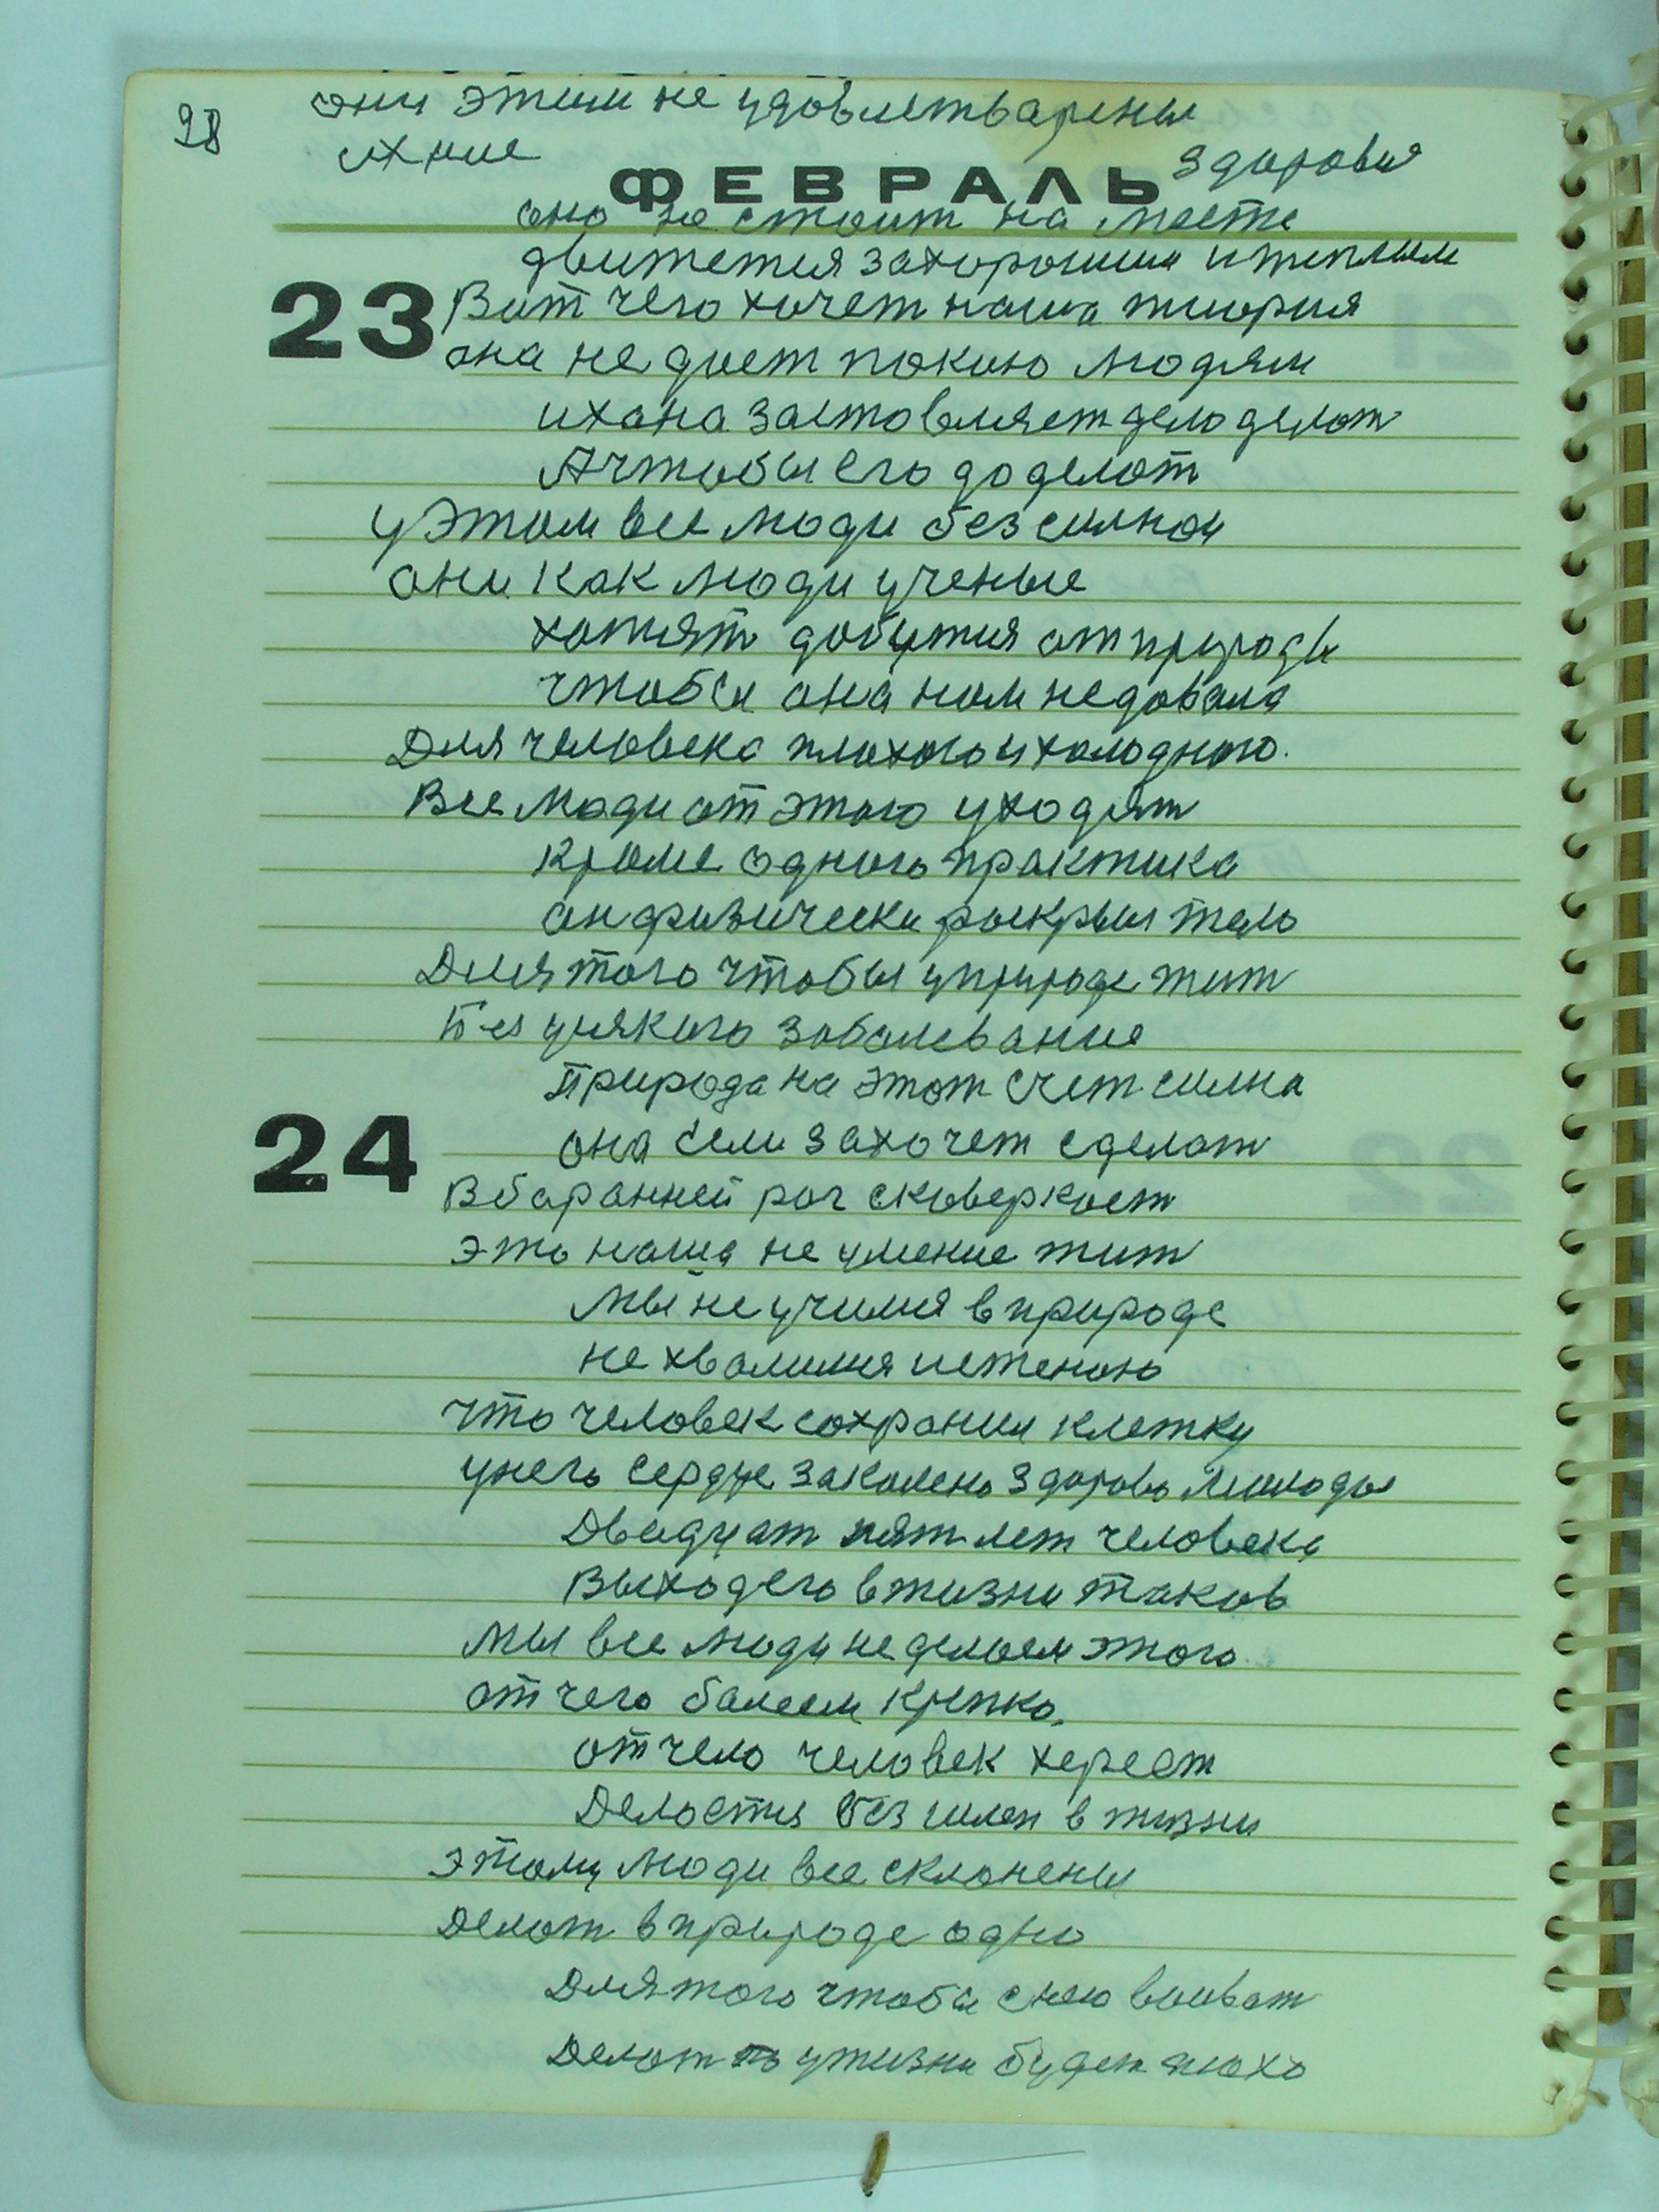 98
они этим не удовлетварены
ихние здоровия
ФЕВРАЛЬ
оно не стоит на месте
движется захорошим итеплым
23
Вот чего хочет наша теория
она не дает покою людям
ихона заставляет дело делат
Ачтобы его доделат
уэтом все люди безсилнои
они как люди ученые
хотят добится отприроды
чтобы она нам недовала
Для человека плохогоихолодного.
Все люди от этого уходят
кроме одного практика
он физически раскрыл тело
Длятого чтобы уприроде жит
Без уиякого заболевание
Природа на этот счет силна
24
она если захочет сделат
Вбаранней рог сковеркает
это наше не умение жит
мы не училися в природе
не хвалилися истеною
что человек сохранил клетку
унего сердце закалено здорово молодых
Двадцат пят лет человека
Выход его вжизни таков
мы все люди не делаем этого
от чего балеем крепко.
от чего человек хереет
Делается без силен в жизни
этому люди все склонены
Делат вприроде одно
Длятого чтобы снею воиват
Делат то ужизни будет плохо